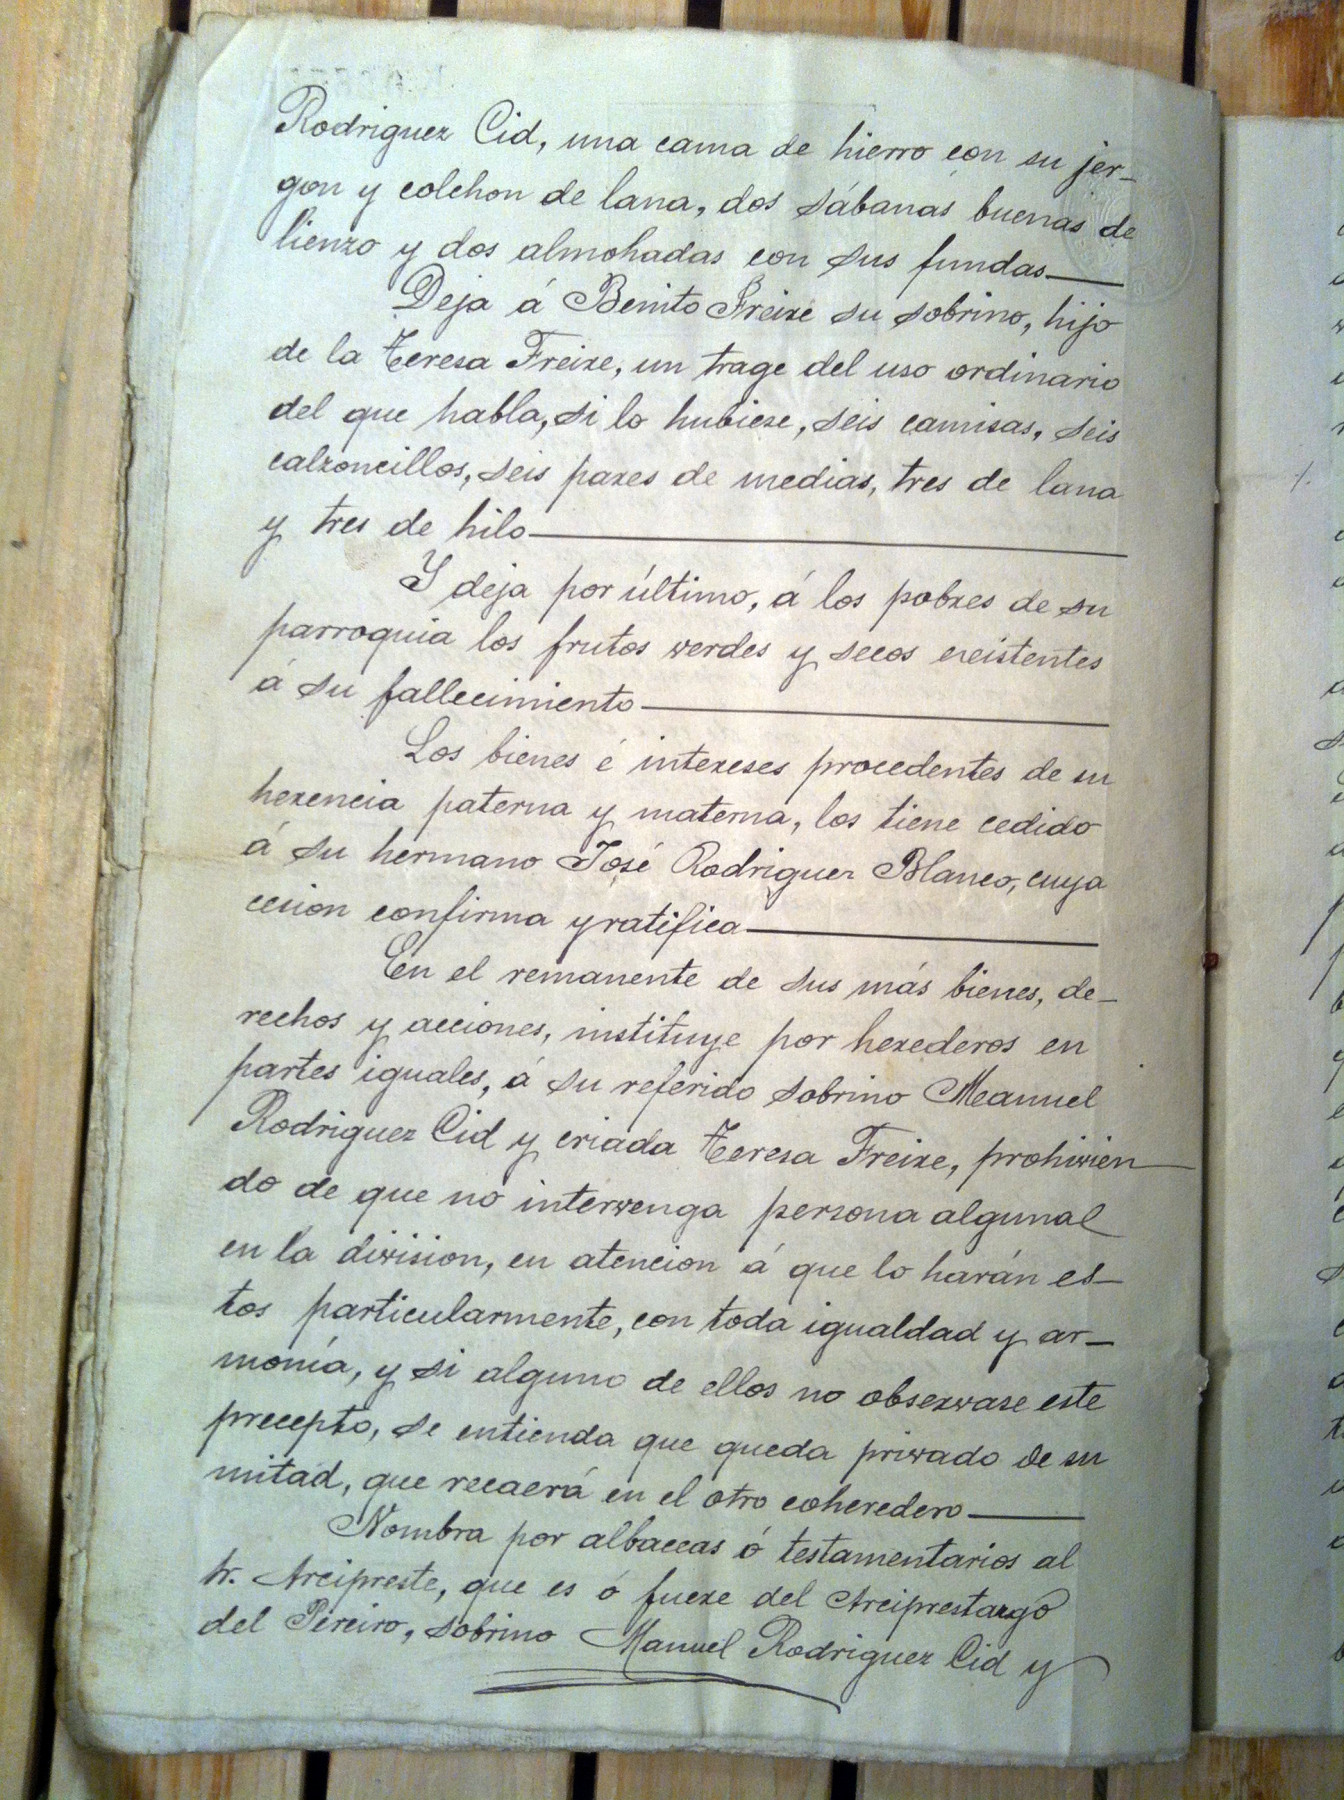 Rodriguez Cid, una cama de hierro con su jer-
gon y colchon de lana, dos sábanas buenas de
lienzo y dos almohadas con sus fundas—
Deja á Benito Freire su sobrino, hijo
de la Teresa Freire, un trage del uso ordinario
del que habla, si lo hubiere, seis camisas, seis
calzoncillos, seis pares de medias, tres de lana
y tres de hilo—
Y deja por último, á los pobres de su
parroquia los frutos verdes y secos existentes
á su fallecimiento—
Los bienes é intereses procedentes de su
herencia paterna y materna, los tiene cedido
á su hermano José Rodriguez Blanco, cuya
cesion confirma y ratifica—
En el remanente de sus más bienes, de-
rechos y acciones, instituye por herederos en
partes iguales, á su referido sobrino Manuel
Rodriguez Cid y criada Teresa Freire, prohivien-
do de que no intervenga persona alguna
en la division, en atencion á que lo harán es-
tos particularmente, con toda igualdad y ar-
monía, y si alguno de ellos no observare este
precepto, se entienda que queda privado de su
mitad, que recaerá en el otro coheredero—
Nombra por albaceas ó testamentarios al
Sr. Arcipreste, que es ó fuere del Arciprestazgo
del Pereiro, sobrino Manuel Rodriguez Cid y